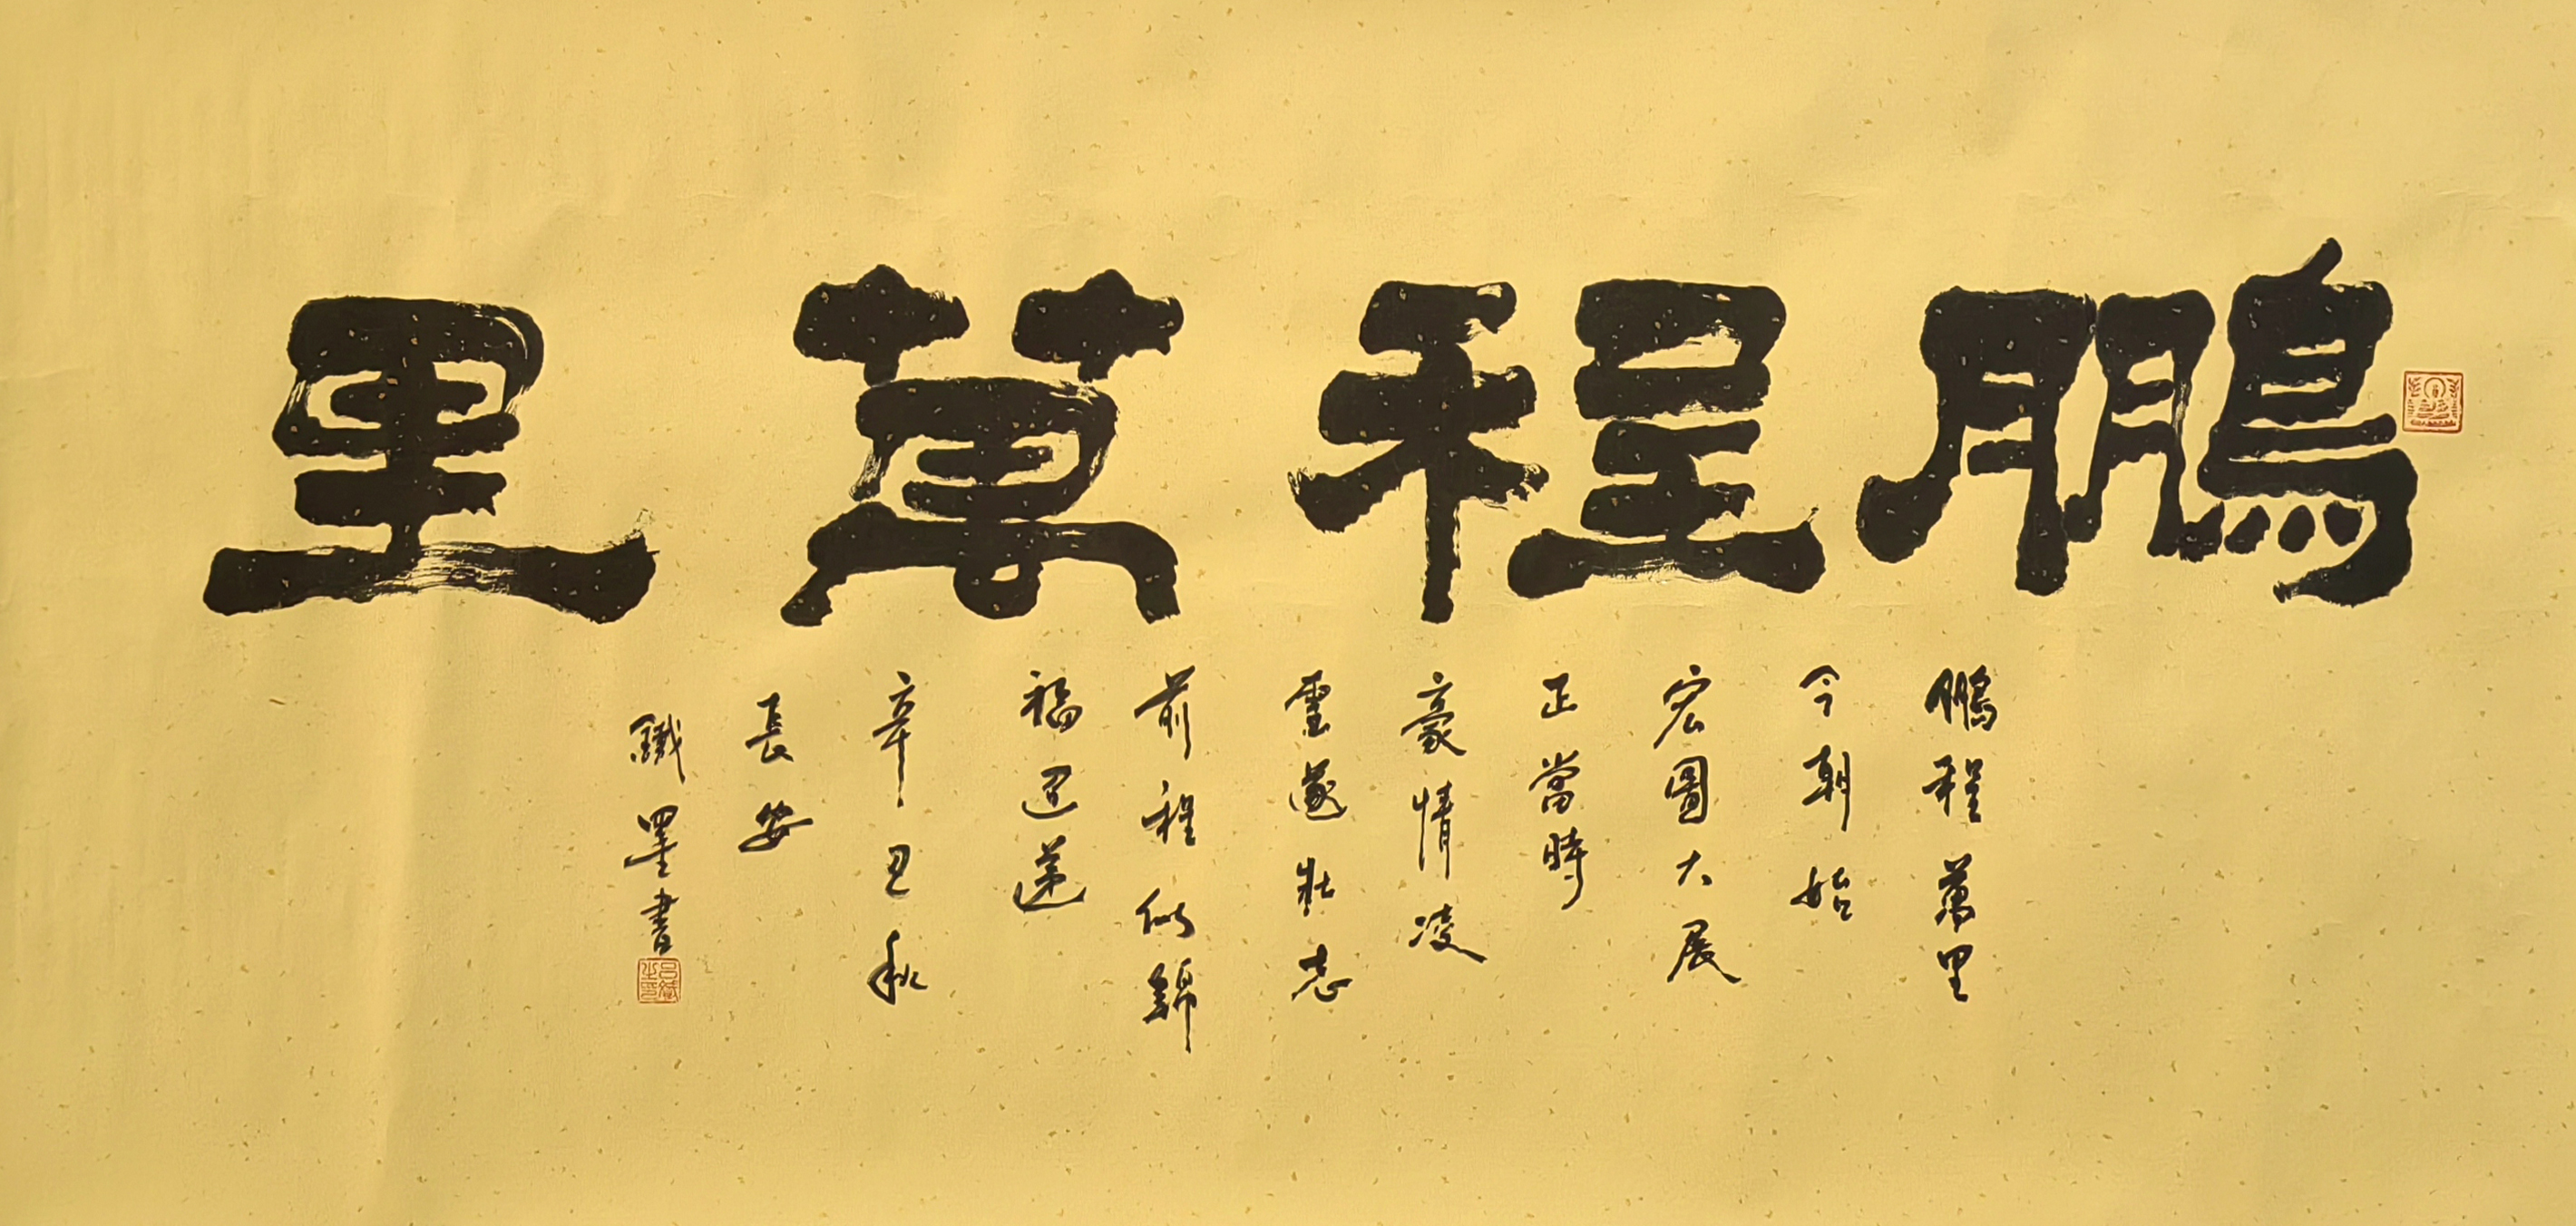 鵬程萬里
鵬程萬里
今朝始
宏圖大展
正當時
豪情凌
雲遂壯志
前程似錦
福迢遞
辛丑秋
長安
鐵墨書